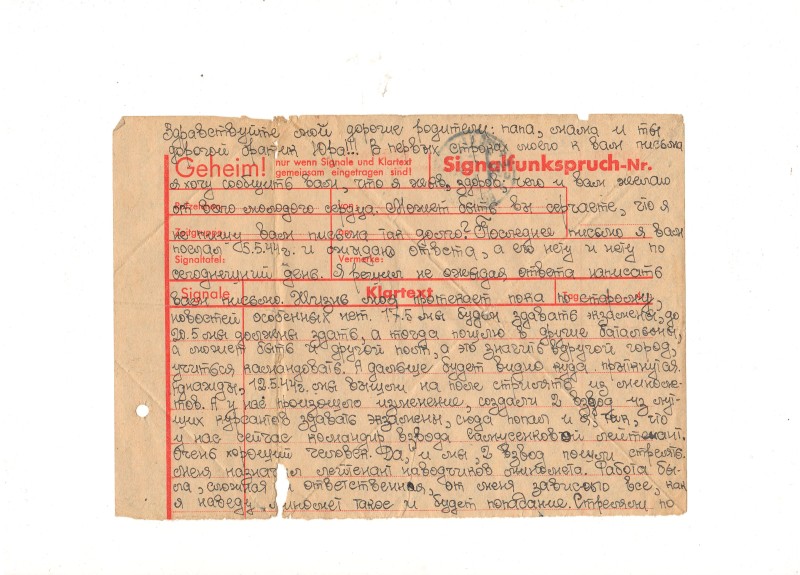 Здравствуйте мои дорогие родители: папа, мама и ты
дорогой братик Юра!!! В первых строках моего к вам письма
Geheim! nur wenn Signale und Klartext gemeinsam eingetragen sind! Signalfunkspruch-Nr.
я хочу сообщить вам, что я жив, здоров, чего и вам желаю
от всего молодого сердца. Может быть вы серчаете, что я
не пишу вам письма так долго? Последнее письмо я вам
послал 5.5.44г. и ожидаю ответа, а его нету и нету по
Signaltafel: Vermerke:
сегодняшний день. Я решил не ожидая ответа написать
вам письмо. Жизнь моя протекает пока по старому,
Signale Klartext Tag
новостей особенных нет. 17.5 мы будем здавать экзамены, до
20.5 мы должны здать, а тогда пошлют в другие батальоны,
а может быть и другой полк, а это значить в другой город,
учиться командовать. А дальше будет видно куда
однажды, 12.5.44г. мы вышли на поле стрелять из миноме-
тов. А у нас произошло изменение, создали 2 взвод из луч-
щих курсантов здавать экзамены, сюда попал и я, так, что
у нас сейчас командир взвода лейтенант.
Очень хороший человек. Да, и мы, 2 взвод пошли стрелять.
меня назначил лейтенант наводчиком миномета. Работа бы-
ла, сложная и ответственная, от меня зависило все, как
я наведу миномет такое и будет попадание. Стреляли по